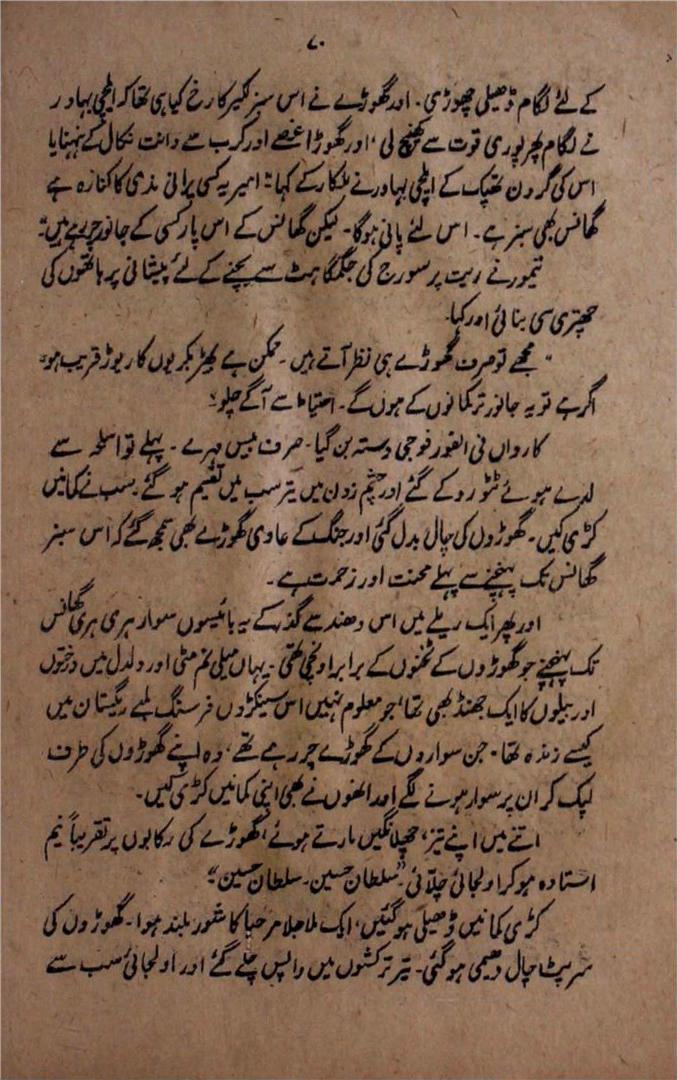 ۷۰
کے لئے لگام ڈھیلی چھوڑی۔ اور گھوڑے نے اس سبز لکیر کا رخ کیا ہی تھا کہ ایلچی بہادر
نے لگام پھر پوری قوت سے کھینچ لی، اور گھوڑا غصے اور کرب سے دانت نکال کے ہنہنایا
اس کی گردن تھپک کے ایلچی بہادر نے للکار کے کہا: "امیر یہ کسی پرانی ندی کا کنارہ ہے
گھانس بھی سبز ہے۔ اس لئے پانی ہوگا۔ لیکن گھانس کے اس پار کسی کے جانور چر رہے ہیں"
تیمور نے ریت پر سورج کی جگمگاہٹ سے بچنے کے لئے پیشانی پر ہاتھوں کی
چھتری سی بنائی اور کہا۔
"مجھے تو صرف گھوڑے ہی نظر آتے ہیں۔ ممکن ہے بھیڑ بکریوں کا ریوڑ قریب ہو۔
اگر ہے تو یہ جانور ترکمانوں کے ہوں گے۔ احتیاط سے آگے چلو"
کارواں فی الفور فوجی دستہ بن گیا۔ صرف بیس مہرے۔ پہلے تو اسلحہ سے
لدے ہوئے ٹٹو روکے گئے اور چشم زدن میں تیر سب میں تقسیم ہو گئے۔ سب نے کمانیں
کڑی کیں۔ گھوڑوں کی چال بدل گئی اور جنگ کے عادی گھوڑے بھی سمجھ گئے کہ اس سبز
گھانس تک پہنچنے سے پہلے محنت اور زحمت ہے۔
اور پھر ایک ریلے میں اس دھند سے گذر کے یہ بائیسوں سوار ہری ہری گھانس
تک پہنچے جو گھوڑوں کے ٹخنوں کے برابر اونچی تھی۔ یہاں میلی نم مٹی اور دلدل میں درختوں
اور بیلوں کا ایک جھنڈ بھی تھا، جو معلوم نہیں اس سینکڑوں فرسنگ لمبے ریگستان میں
کیسے زندہ تھا۔ جن سواروں کے گھوڑے چر رہے تھے، وہ اپنے گھوڑوں کی طرف
لپک کر ان پر سوار ہونے لگے اور انھوں نے بھی اپنی کمانیں کڑی کیں۔
اتنے میں اپنے تیز، چھلانگیں مارتے ہوئے، گھوڑے کی رکابوں پر تقریباً نیم
استادہ ہو کر اولجائی چلّائی "سلطان حسین۔ سلطان حسین"
کڑی کمانیں ڈھیلی ہو گئیں، ایک ملا جلا مرحبا کا شور بلند ہوا۔ گھوڑوں کی
سرپٹ چال دھیمی ہو گئی۔ تیر ترکشوں میں واپس چلے گئے اور اولجائی سب سے